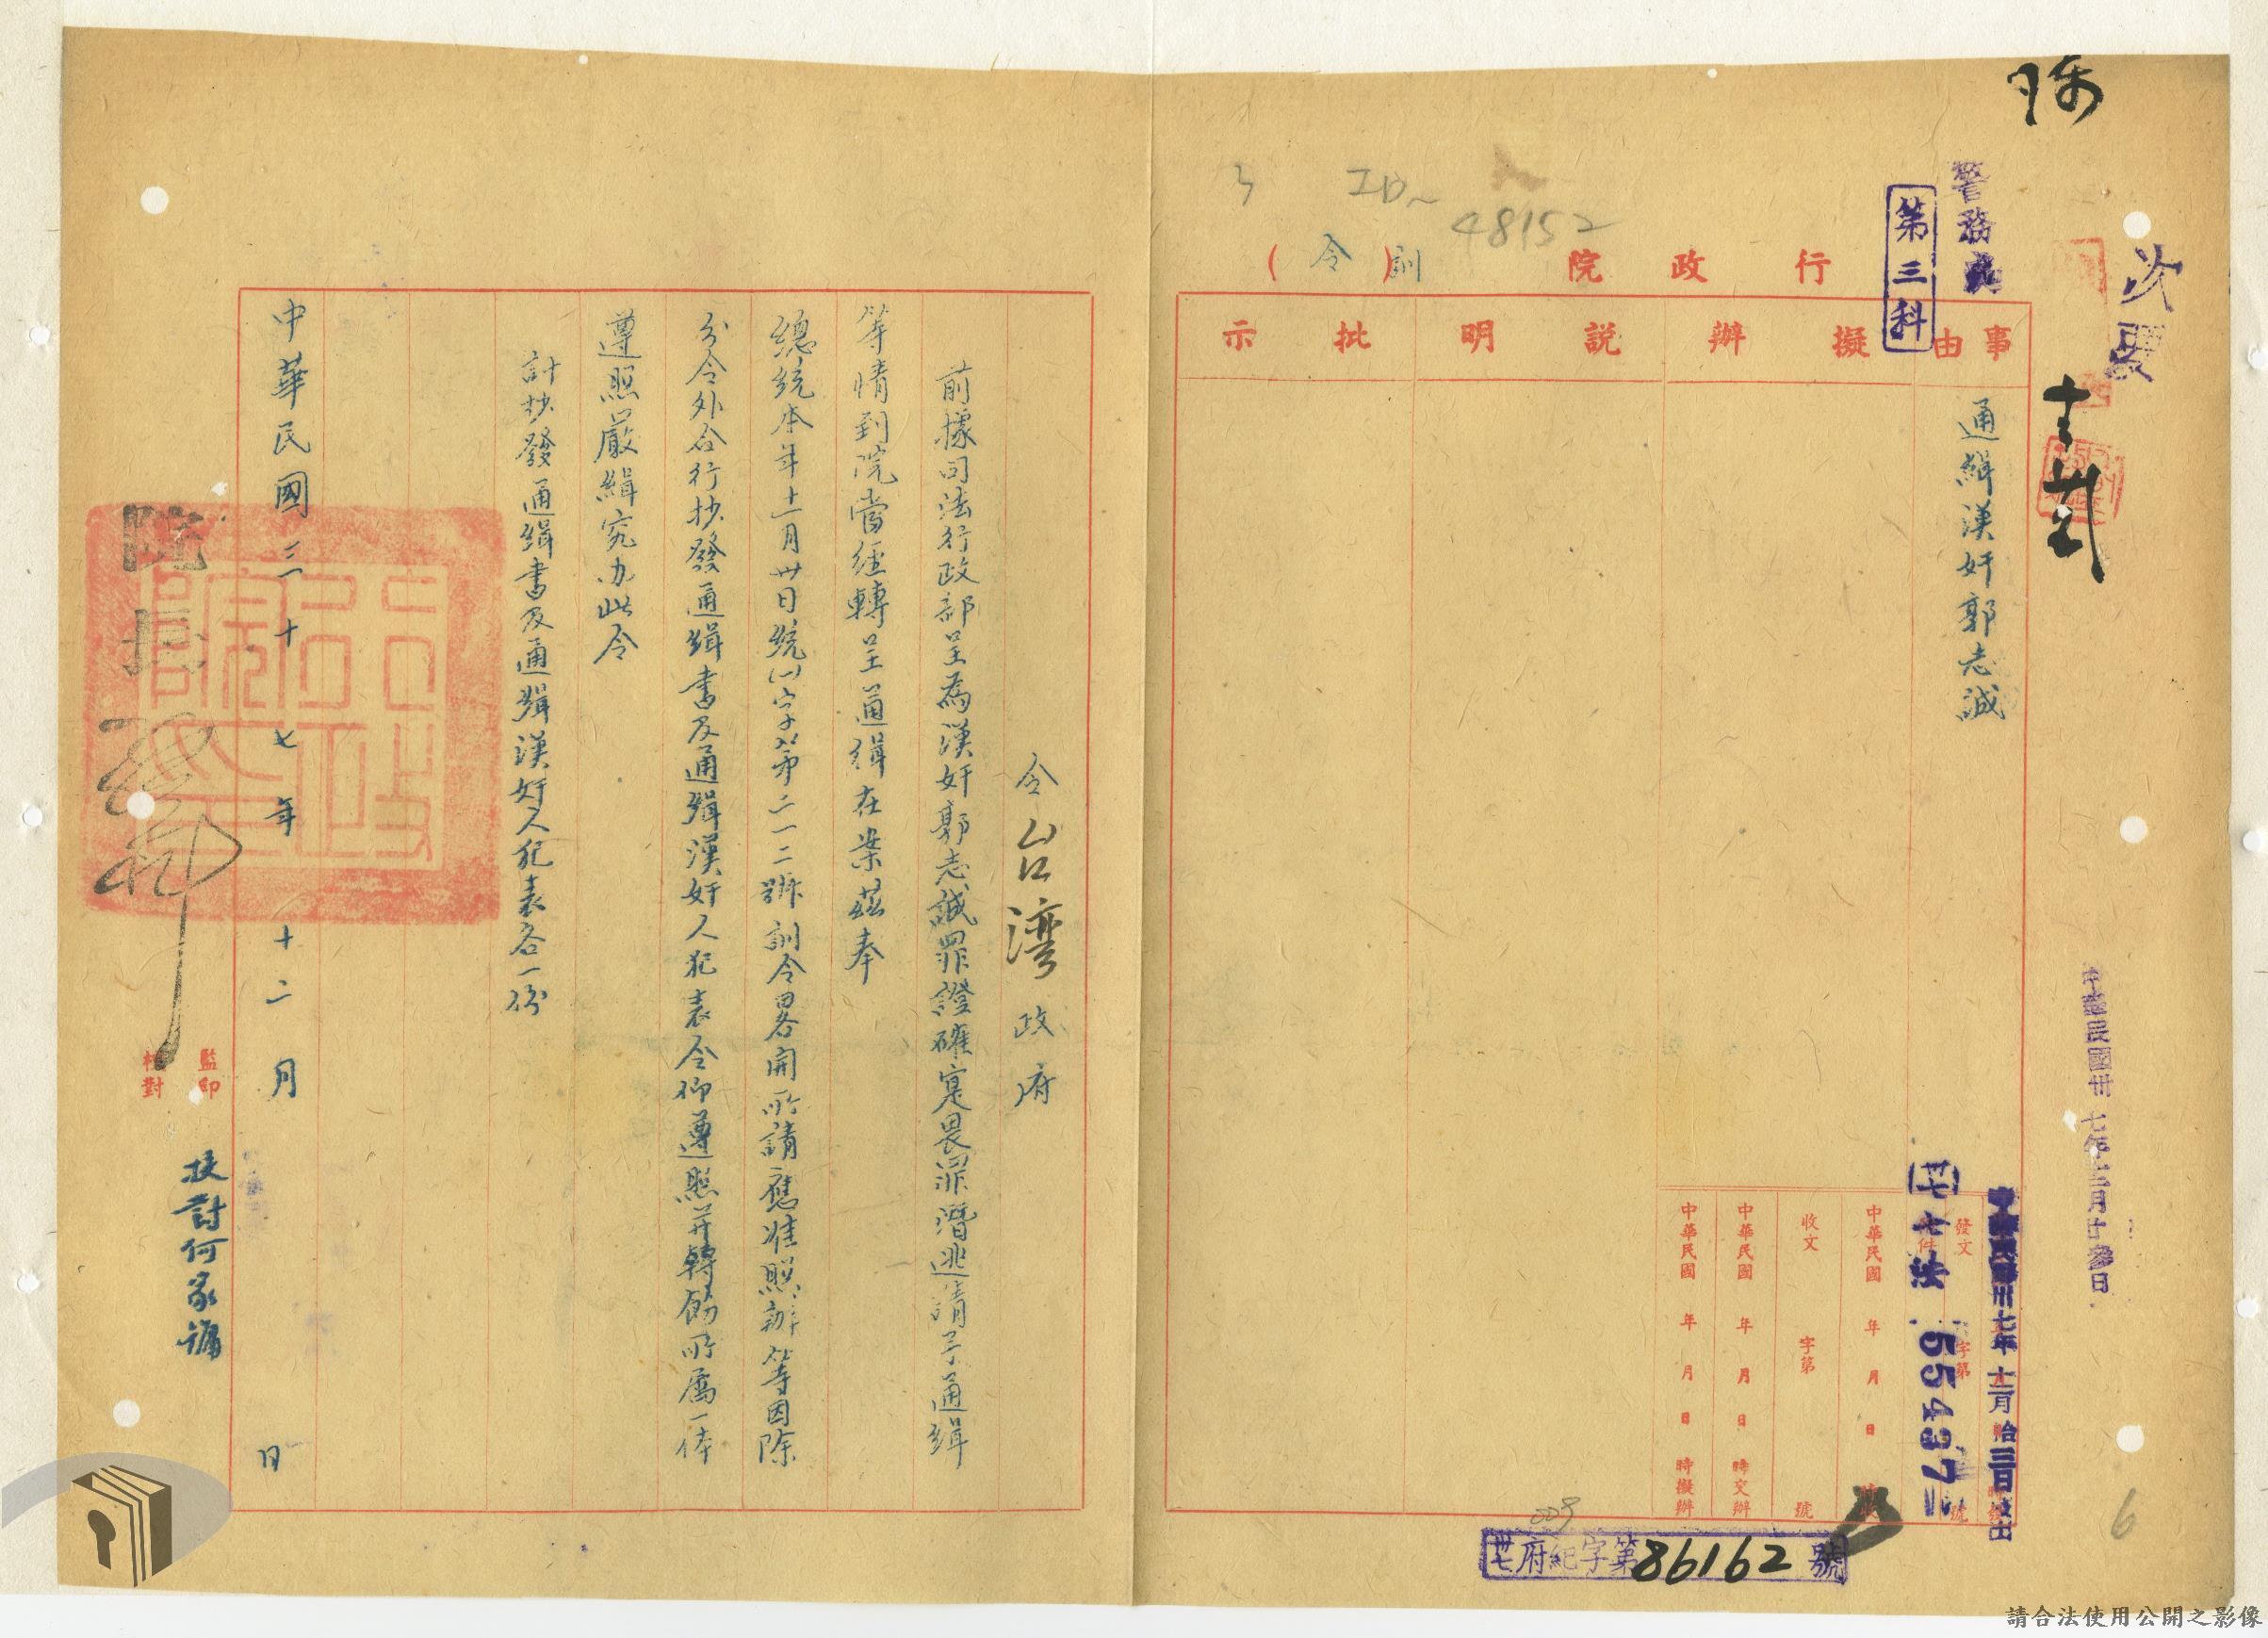 次要
警務處
第三科
行政院
訓
(令)
48152
事由
擬辦
說明
批示
通緝漢奸郭志誠
中華民國卅七年十二月廿參日
中華民國卅七年十二月拾三日發出
發文
字第
號
(卅七)七法
55437
中華民國 年 月 日 時
收文 字第 號
中華民國 年 月 日 時交辦
中華民國 年 月 日 時擬辦
卅七府紀字第86162號
009
6
令台灣政府
前據司法行政部呈為漢奸郭志誠罪證確寔畏罪潛逃請予通緝
等情到院當經轉呈通緝在案茲奉
總統本年十一月卅日統(一)字第二一二號訓令畧開所請應准照辦等因除
分令外合行抄發通緝書及通緝漢奸人犯表令仰遵照并轉飭所屬一体
遵照嚴緝究办此令
計抄發通緝書及通緝漢奸人犯表各一份
中華民國三十七年十二月 日
院長
行政院印
監印
校對
校對何家
請合法使用公開之影像